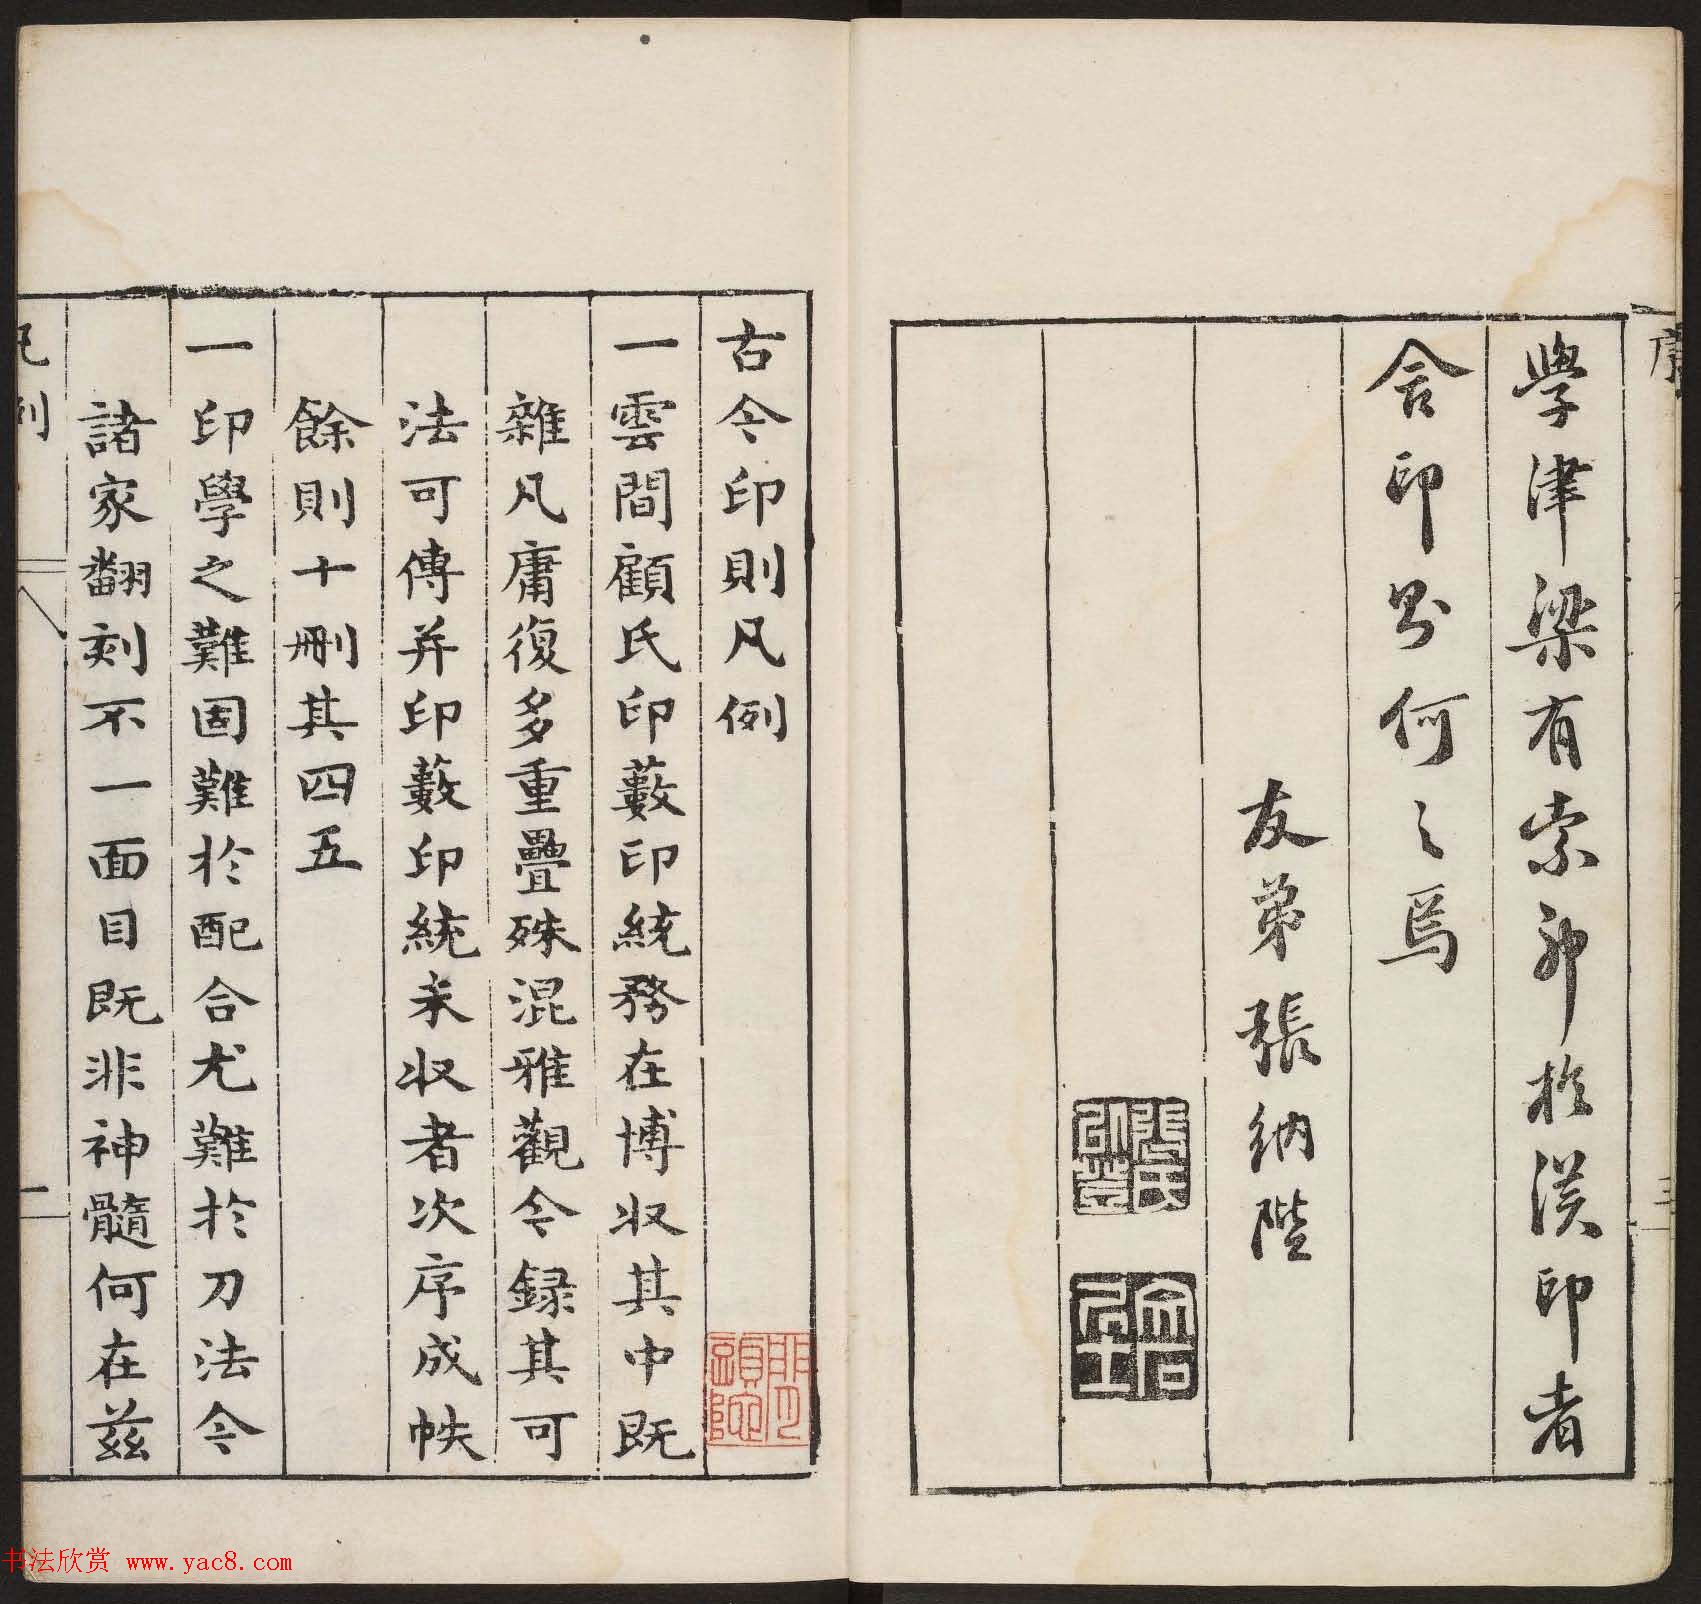 學津梁有索解於漢印者
舍印則何之焉
友弟張納陛
古今印則凡例
一雲間顧氏印藪印統務在博収其中既
雜凡庸復多重疊殊混雅觀今録其可
法可傳并印藪印統未収者次序成帙
餘則十刪其四五
一印學之難固難於配合尤難於刀法今
諸家翻刻不一面目既非神髓何在兹
凡例
一
书法欣赏 www.yac8.com